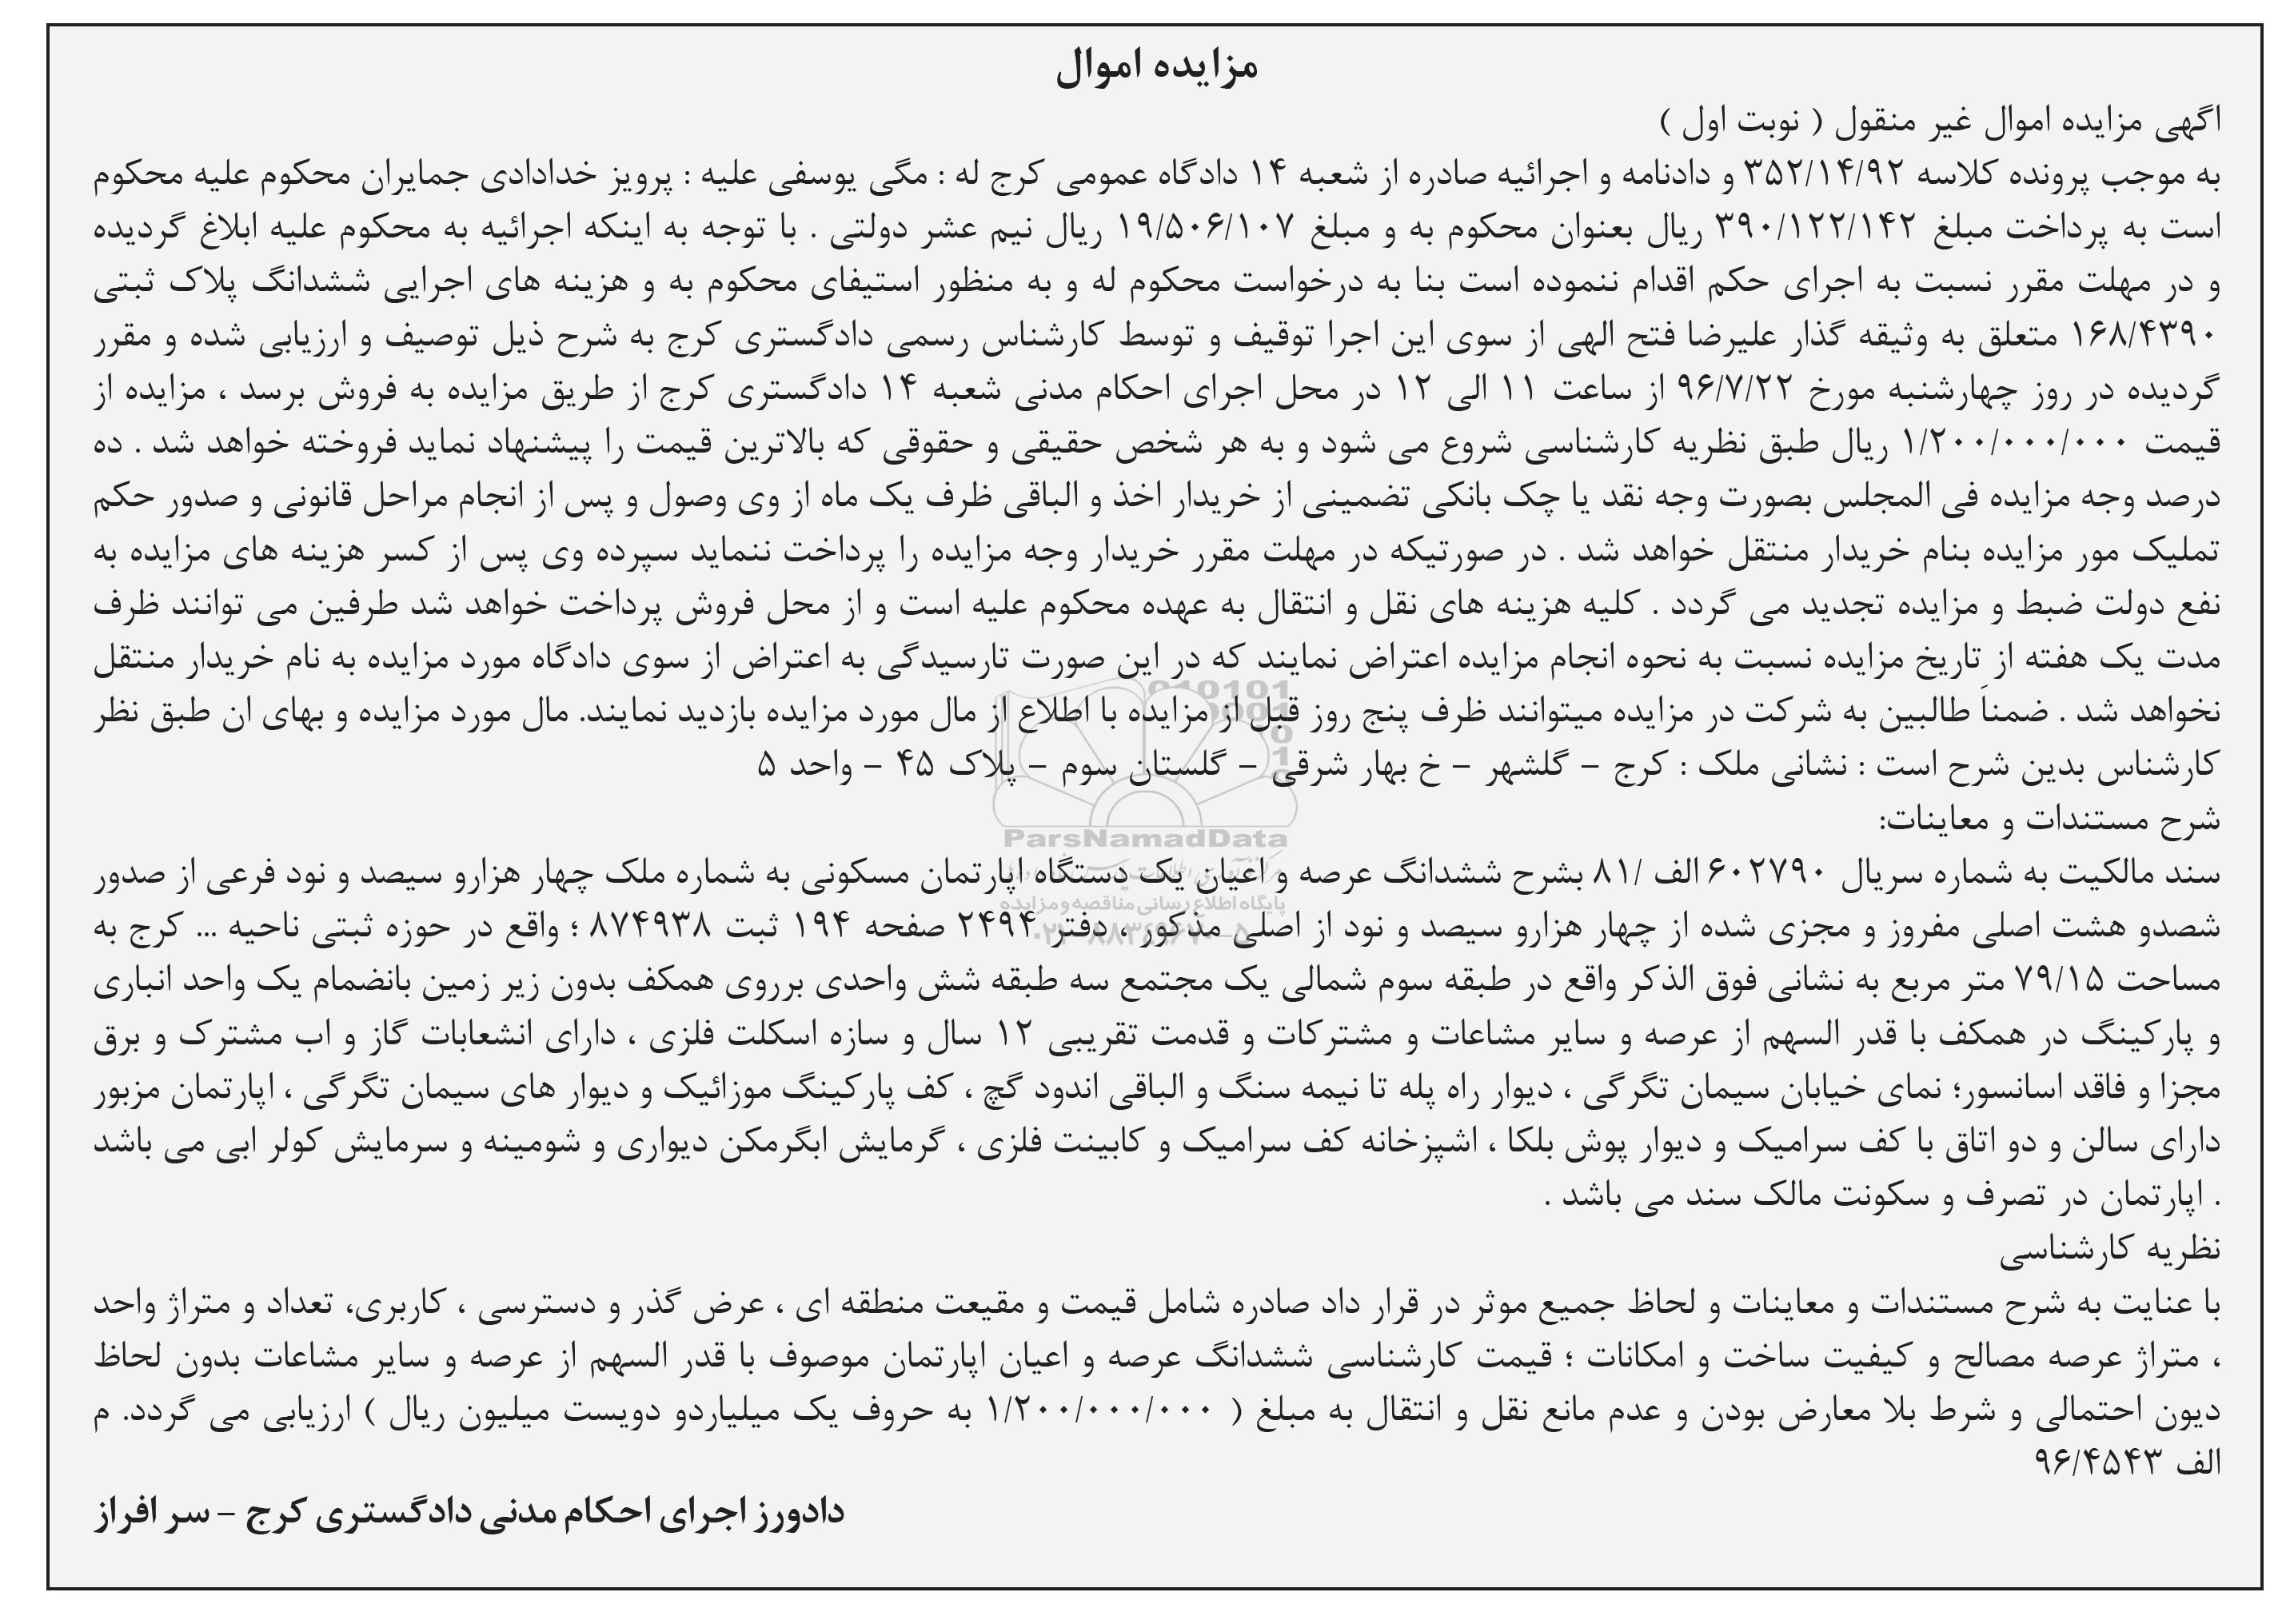 مزایده اموال
اگهی مزایده اموال غیر منقول ( نوبت اول )
به موجب پرونده کلاسه ۳۵۲/۱۴/۹۲ و دادنامه و اجرائیه صادره از شعبه ۱۴ دادگاه عمومی کرج له : مگی یوسفی علیه : پرویز خدادادی جمایران محکوم علیه محکوم
است به پرداخت مبلغ ۳۹۰/۱۲۲/۱۴۲ ریال بعنوان محکوم به و مبلغ ۱۹/۵۰۶/۱۰۷ ریال نیم عشر دولتی . با توجه به اینکه اجرائیه به محکوم علیه ابلاغ گردیده
و در مهلت مقرر نسبت به اجرای حکم اقدام ننموده است بنا به درخواست محکوم له و به منظور استیفای محکوم به و هزینه های اجرایی ششدانگ پلاک ثبتی
۱۶۸/۴۳۹۰ متعلق به وثیقه گذار علیرضا فتح الهی از سوی این اجرا توقیف و توسط کارشناس رسمی دادگستری کرج به شرح ذیل توصیف و ارزیابی شده و مقرر
گردیده در روز چهارشنبه مورخ ۹۶/۷/۲۲ از ساعت ۱۱ الی ۱۲ در محل اجرای احکام مدنی شعبه ۱۴ دادگستری کرج از طریق مزایده به فروش برسد ، مزایده از
قیمت ۱/۲۰۰/۰۰۰/۰۰۰ ریال طبق نظریه کارشناسی شروع می شود و به هر شخص حقیقی و حقوقی که بالاترین قیمت را پیشنهاد نماید فروخته خواهد شد . ده
درصد وجه مزایده فی المجلس بصورت وجه نقد یا چک بانکی تضمینی از خریدار اخذ و الباقی ظرف یک ماه از وی وصول و پس از انجام مراحل قانونی و صدور حکم
تملیک مور مزایده بنام خریدار منتقل خواهد شد . در صورتیکه در مهلت مقرر خریدار وجه مزایده را پرداخت ننماید سپرده وی پس از کسر هزینه های مزایده به
نفع دولت ضبط و مزایده تجدید می گردد . کلیه هزینه های نقل و انتقال به عهده محکوم علیه است و از محل فروش پرداخت خواهد شد طرفین می توانند ظرف
مدت یک هفته از تاریخ مزایده نسبت به نحوه انجام مزایده اعتراض نمایند که در این صورت تارسیدگی به اعتراض از سوی دادگاه مورد مزایده به نام خریدار منتقل
نخواهد شد . ضمناَ طالبین به شرکت در مزایده میتوانند ظرف پنج روز قبل از مزایده با اطلاع از مال مورد مزایده بازدید نمایند. مال مورد مزایده و بهای ان طبق نظر
کارشناس بدین شرح است : نشانی ملک : کرج – گلشهر – خ بهار شرقی – گلستان سوم – پلاک ۴۵ – واحد ۵
ParsNamadData
شرح مستندات و معاینات:
سند مالکیت به شماره سریال ۶۰۲۷۹۰ الف /۸۱ بشرح ششدانگ عرصه و اعیان یک دستگاه اپارتمان مسکونی به شماره ملک چهار هزارو سیصد و نود فرعی از صدور
پایگاه اطلاع رسانی مناقصه و مزایده
شصدو هشت اصلی مفروز و مجزی شده از چهار هزارو سیصد و نود از اصلی مذکور ، دفتر ۲۴۹۴ صفحه ۱۹۴ ثبت ۸۷۴۹۳۸ ؛ واقع در حوزه ثبتی ناحیه ... کرج به
مساحت ۷۹/۱۵ متر مربع به نشانی فوق الذکر واقع در طبقه سوم شمالی یک مجتمع سه طبقه شش واحدی برروی همکف بدون زیر زمین بانضمام یک واحد انباری
و پارکینگ در همکف با قدر السهم از عرصه و سایر مشاعات و مشترکات و قدمت تقریبی ۱۲ سال و سازه اسکلت فلزی ، دارای انشعابات گاز و اب مشترک و برق
مجزا و فاقد اسانسور؛ نمای خیابان سیمان تگرگی ، دیوار راه پله تا نیمه سنگ و الباقی اندود گچ ، کف پارکینگ موزائیک و دیوار های سیمان تگرگی ، اپارتمان مزبور
دارای سالن و دو اتاق با کف سرامیک و دیوار پوش بلکا ، اشپزخانه کف سرامیک و کابینت فلزی ، گرمایش ابگرمکن دیواری و شومینه و سرمایش کولر ابی می باشد
. اپارتمان در تصرف و سکونت مالک سند می باشد .
نظریه کارشناسی
با عنایت به شرح مستندات و معاینات و لحاظ جمیع موثر در قرار داد صادره شامل قیمت و مقیعت منطقه ای ، عرض گذر و دسترسی ، کاربری، تعداد و متراژ واحد
، متراژ عرصه مصالح و کیفیت ساخت و امکانات ؛ قیمت کارشناسی ششدانگ عرصه و اعیان اپارتمان موصوف با قدر السهم از عرصه و سایر مشاعات بدون لحاظ
دیون احتمالی و شرط بلا معارض بودن و عدم مانع نقل و انتقال به مبلغ ( ۱/۲۰۰/۰۰۰/۰۰۰ به حروف یک میلیاردو دویست میلیون ریال ) ارزیابی می گردد. م
الف ۹۶/۴۵۴۳
دادورز اجرای احکام مدنی دادگستری کرج – سر افراز